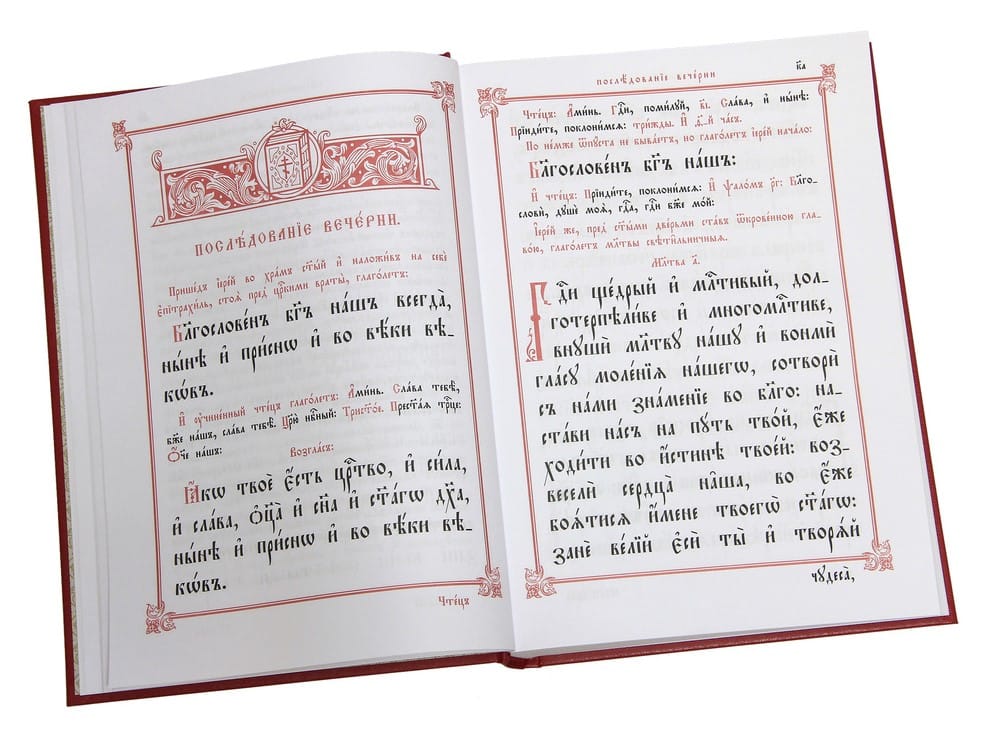 ПОСЛѢ́ДОВАНЇЕ ВЕЧЕ́РНИ.
Прише́дъ їере́й во хра́мъ ст҃ы́й и҆ наложи́въ на себѐ
є҆пїтрахи́ль, стоѧ̀ пред̾ цр҃кими враты̀, глаго́летъ:
Бл҃гослове́нъ бг҃ъ на́шъ всегда̀,
ны́нѣ и҆ при́снѡ и҆ во вѣ́ки вѣ-
кѡ́въ.
И҆ ᲂу҆чине́нный чте́цъ глаго́летъ: А҆ми́нь. Сла́ва тебѣ̀,
бж҃е на́шъ, сла́ва тебѣ̀. Цр҃ю̀ нбⷭ҇ный: Трист҃о́е. Прест҃а́ѧ трⷪ҇це:
Ѻ҆́ч҃е на́шъ:
Во́згласъ:
Ꙗ҆́кѡ твоѐ є҆́сть црⷭ҇тво, и҆ си́ла,
и҆ сла́ва, ѻ҆ц҃а̀ и҆ сн҃а и҆ ст҃а́гѡ дх҃а,
ны́нѣ и҆ при́снѡ и҆ во вѣ́ки вѣ-
кѡ́въ.
Чте́цъ
ПОСЛѢ́ДОВАНЇЕ ВЕЧЕ́РНИ
к҃а
Чте́цъ: А҆ми́нь. Гдⷭ҇и, поми́лꙋй, в҃і. Сла́ва, и҆ ны́нѣ:
Прїиди́те, поклони́мсѧ: три́жды. И҆ а҃-й ча́съ.
По не́мже ѿпꙋ́ста не быва́етъ, но глаго́летъ їере́й нача́ло:
Бл҃гослове́нъ бг҃ъ на́шъ:
И҆ чте́цъ: Прїиди́те, поклони́мсѧ: И҆ ѱало́мъ р҃г: Бл҃го-
словѝ, дꙋшѐ моѧ̀, гдⷭ҇а, гдⷭ҇и бж҃е мо́й:
Їере́й же, пред̾ ст҃ы́ми две́рьми ста́въ ѿкрове́нною гла-
во́ю, глаго́летъ мл҃твы свѣти́льничныѧ.
Мл҃тва а҃.
Гдⷭ҇и ще́дрый и҆ млⷭ҇тивый, дол-
готерпѣли́ве и҆ многомлⷭ҇тиве,
внꙋшѝ мл҃твꙋ на́шꙋ и҆ вонмѝ
гла́сꙋ моле́нїѧ на́шегѡ, сотворѝ
съ на́ми зна́менїе во бл҃го: на-
ста́ви на́съ на пꙋ́ть тво́й, є҆́же
ходи́ти во и҆́стинѣ твое́й: воз-
веселѝ сердца̀ на̑ша, во є҆́же
боѧ́тисѧ и҆́мене твоегѡ̀ ст҃а́гѡ:
занѐ ве́лїй є҆сѝ ты̀ и҆ творѧ́й
чꙋдеса̀,